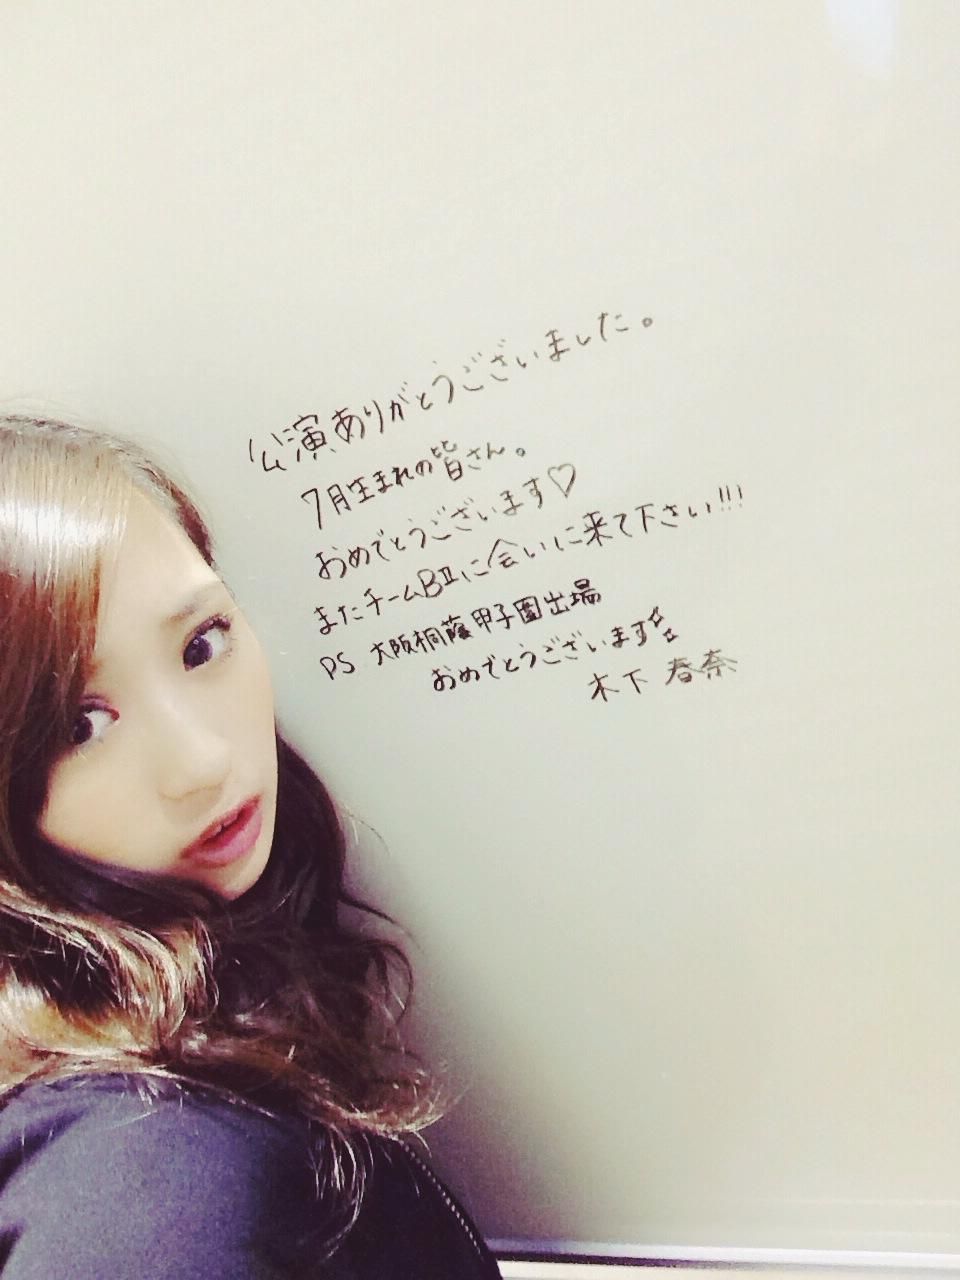 公演ありがとうございました。
7月生まれの皆さん。
おめでとうございます♡
またチームBⅡに会いに来て下さい!!!
PS 大阪桐蔭甲子園出場
おめでとうございます
木下 春奈